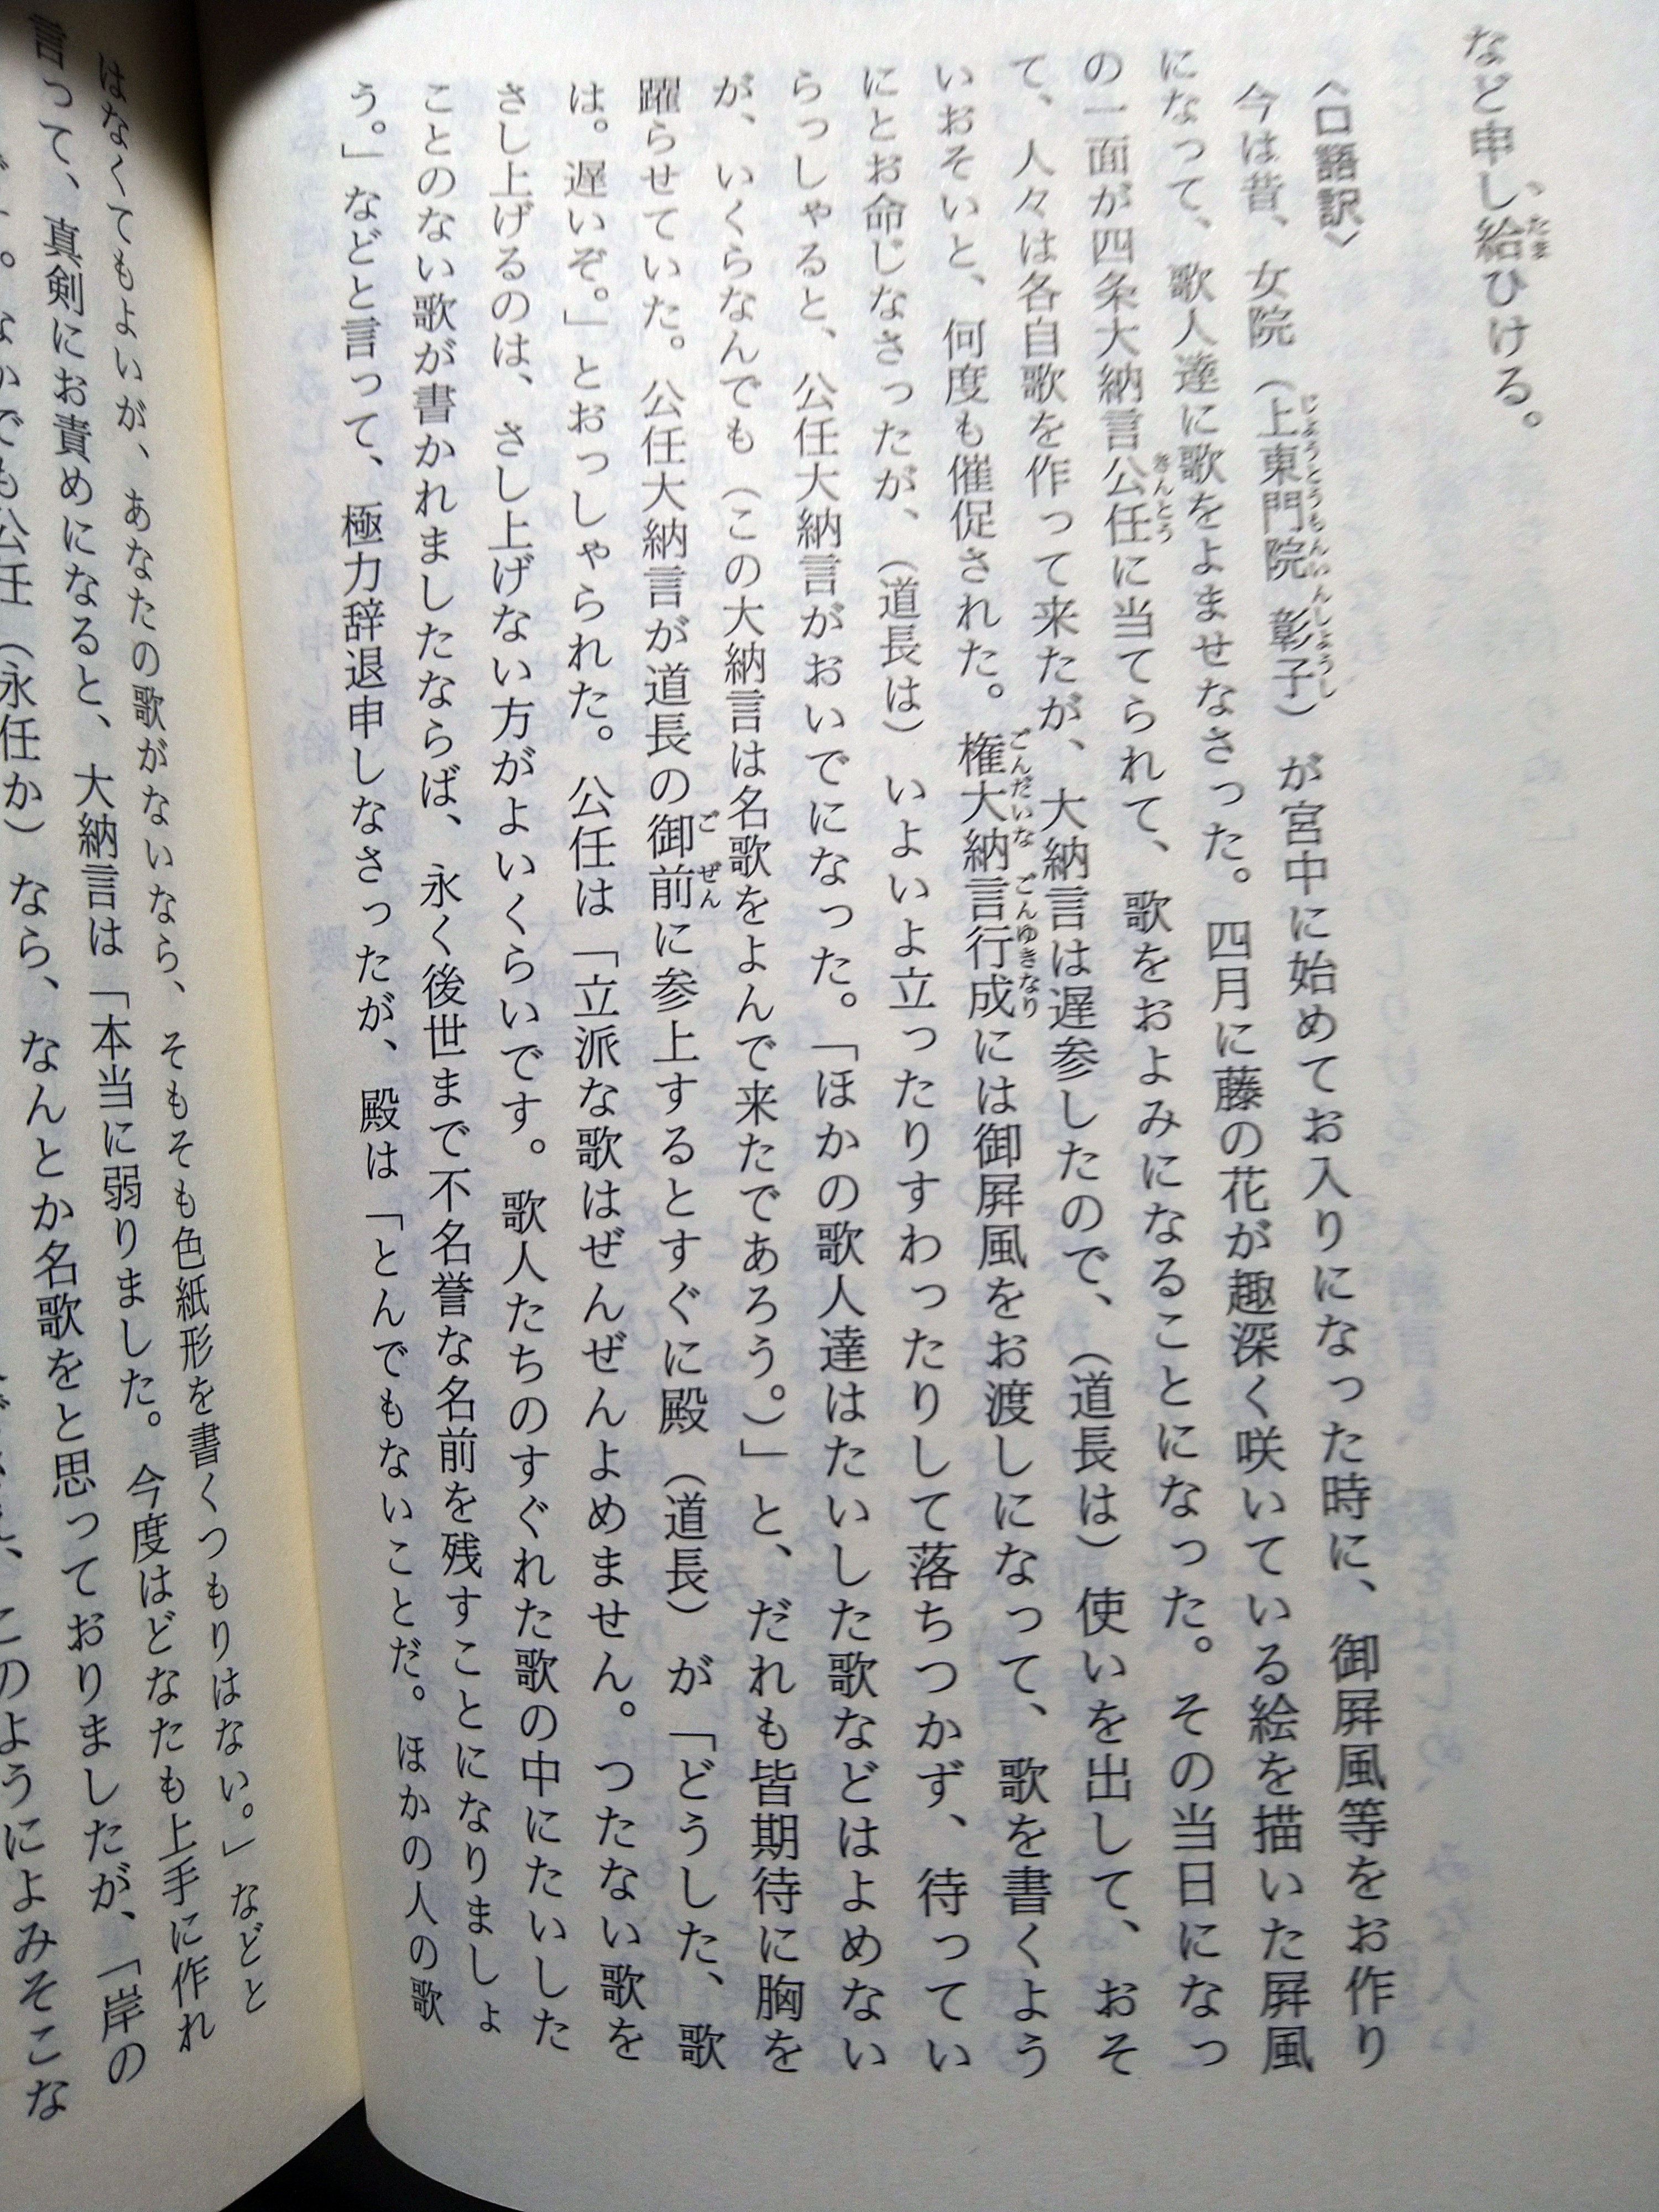 など申し給ひける。
〈口語訳〉
今は昔、女院（上東門院彰子）が宮中に始めてお入りになった時に、御屛風等をお作り
になって、歌人達に歌をよませなさった。四月に藤の花が趣深く咲いている絵を描いた屛風
の一面が四条大納言公任に当てられて、歌をおよみになることになった。その当日になっ
て、人々は各自歌を作って来たが、大納言は遅参したので、（道長は）使いを出して、おそ
いおそいと、何度も催促された。権大納言行成には御屛風をお渡しになって、歌を書くよう
にとお命じなさったが、（道長は）いよいよ立ったりすわったりして落ちつかず、待ってい
らっしゃると、公任大納言がおいでになった。「ほかの歌人達はたいした歌などはよめない
が、いくらなんでも（この大納言は名歌をよんで来たであろう。）」と、だれも皆期待に胸を
躍らせていた。公任大納言が道長の御前に参上するとすぐに殿（道長）が「どうした、歌
は。遅いぞ。」とおっしゃられた。公任は「立派な歌はぜんぜんよめません。つたない歌を
さし上げるのは、さし上げない方がよいくらいです。歌人たちのすぐれた歌の中にたいした
ことのない歌が書かれましたならば、永く後世まで不名誉な名前を残すことになりましょ
う。」などと言って、極力辞退申しなさったが、殿は「とんでもないことだ。ほかの人の歌
はなくてもよいが、あなたの歌がないなら、そもそも色紙形を書くつもりはない。」などと
言って、真剣にお責めになると、大納言は「本当に弱りました。今度はどなたも上手に作れ
なかでも公任（永任か）なら、なんとか名歌をと思っておりましたが、「岸の
このようによみそこな